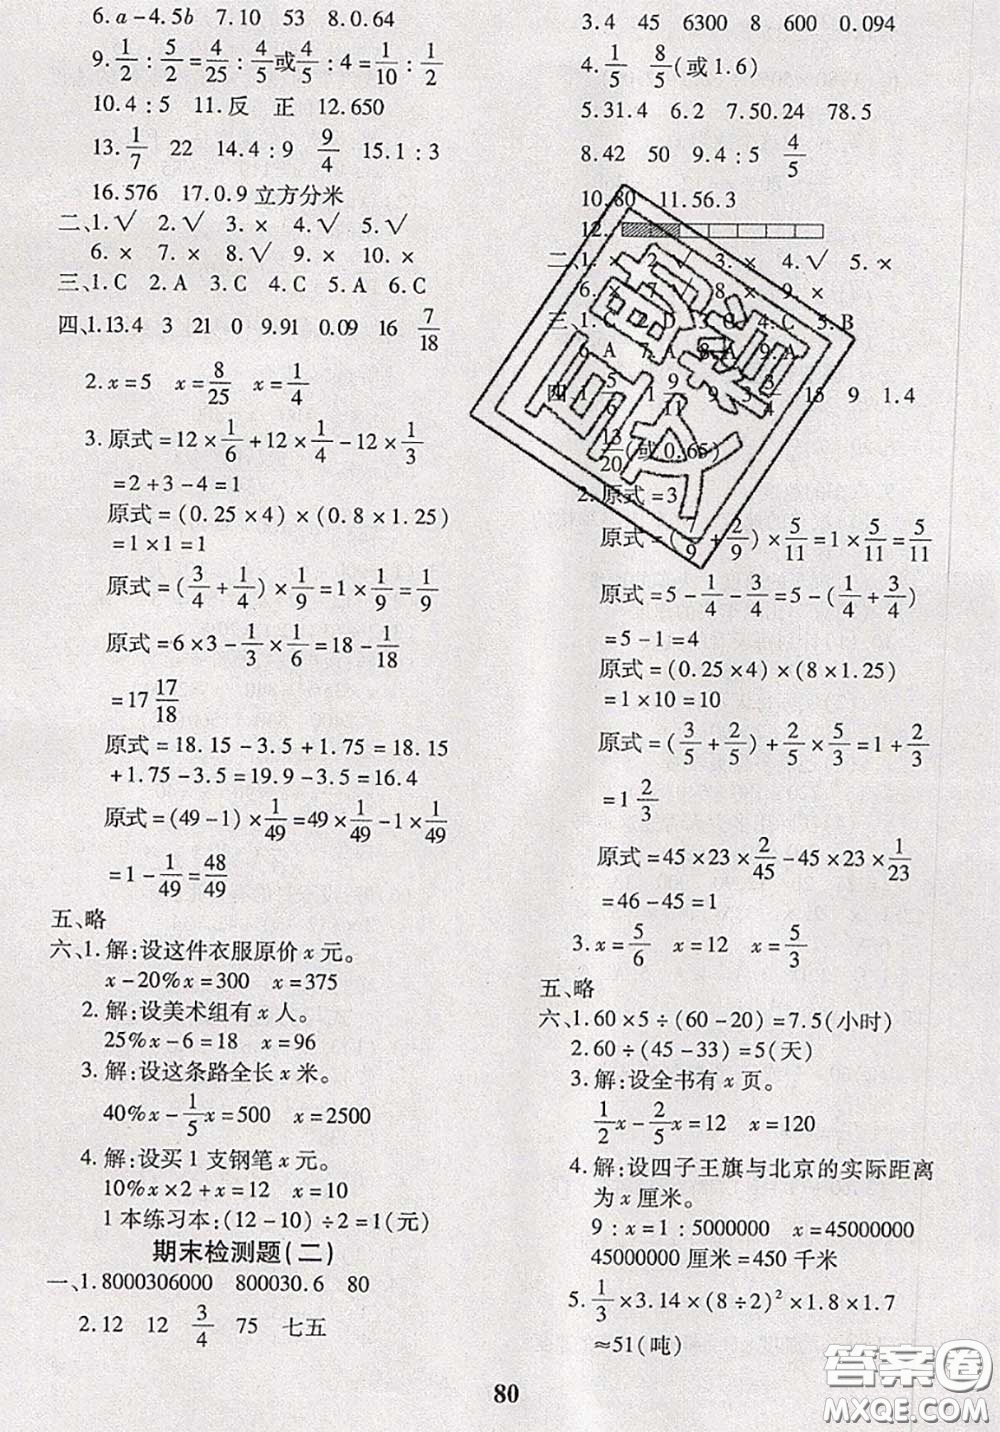 6. a-4.5b 7.10 53 8.0.64
9. 1/2 : 5/2 = 4/25 : 4/5 或 4/5 : 4 = 1/10 : 1/2
10.4 : 5 11.反 正 12.650
13. 1/7 22 14.4 : 9 9/4 15.1 : 3
16.576 17.0.9立方分米
二、1.√ 2.√ 3.× 4.√ 5.√
6.× 7.× 8.× 9.√ 10.×
三、1.C 2.A 3.B 4.C 5.A 6.C
四、1.13.4 3 21 0 9.91 0.09 16 7/18
2. x=5 x=8/25 x=1/4
3. 原式=12×1/6+12×1/4-12×1/3
=2+3-4=1
原式=(0.25×4)×(0.8×1.25)
=1×1=1
原式=(3/4+1/4)×1/9=1×1/9=1/9
原式=6×3-1/3×1/6=18-1/18
=17 17/18
原式=18.15-3.5+1.75=18.15
+1.75-3.5=19.9-3.5=16.4
原式=(49-1)×1/49=49×1/49-1×1/49
=1-1/49=48/49
五、略
六、1.解:设这件衣服原价x元。
x-20%x=300 x=375
2.解:设美术组有x人。
25%x-6=18 x=96
3.解:设这条路全长x米。
40%x-1/5x=500 x=2500
4.解:设买1支钢笔x元。
10%x×2+x=12 x=10
1本练习本:(12-10)÷2=1(元)
期末检测题(二)
一、1.8000306000 800030.6 80
2.12 12 3/4 75 七五
3.4 45 6300 8 600 0.094
4. 1/5 8/5(或1.6)
5.31.4 6.2 7.50.24 78.5
8.42 50 9.4 : 5 4/5
10.80 11.56.3
12.
二、1.× 2.√ 3.× 4.√ 5.×
6.× 7.√ 8.× 9.×
三、1.C 2.D 4.C 5.B
6.A 7.A 8.A 9.A
四、1. 5/6 1 9/11 9 3/4 15 9 1.4
13/20(或0.65)
2.原式=3
原式=( /9+2/9)×5/11=1×5/11=5/11
原式=5-1/4-3/4=5-(1/4+3/4)
=5-1=4
原式=(0.25×4)×(8×1.25)
=1×10=10
原式=(3/5+2/5)+2/5×5/3=1+2/3
=1 2/3
原式=45×23×2/45-45×23×1/23
=46-45=1
3. x=5/6 x=12 x=5/3
五、略
六、1.60×5÷(60-20)=7.5(小时)
2.60÷(45-33)=5(天)
3.解:设全书有x页。
1/2x-2/5x=12 x=120
4.解:设四子王旗与北京的实际距离
为x厘米。
9 : x=1 : 5000000 x=45000000
45000000厘米=450千米
5. 1/3×3.14×(8÷2)²×1.8×1.7
≈51(吨)
80
答案圈
MXQE.COM